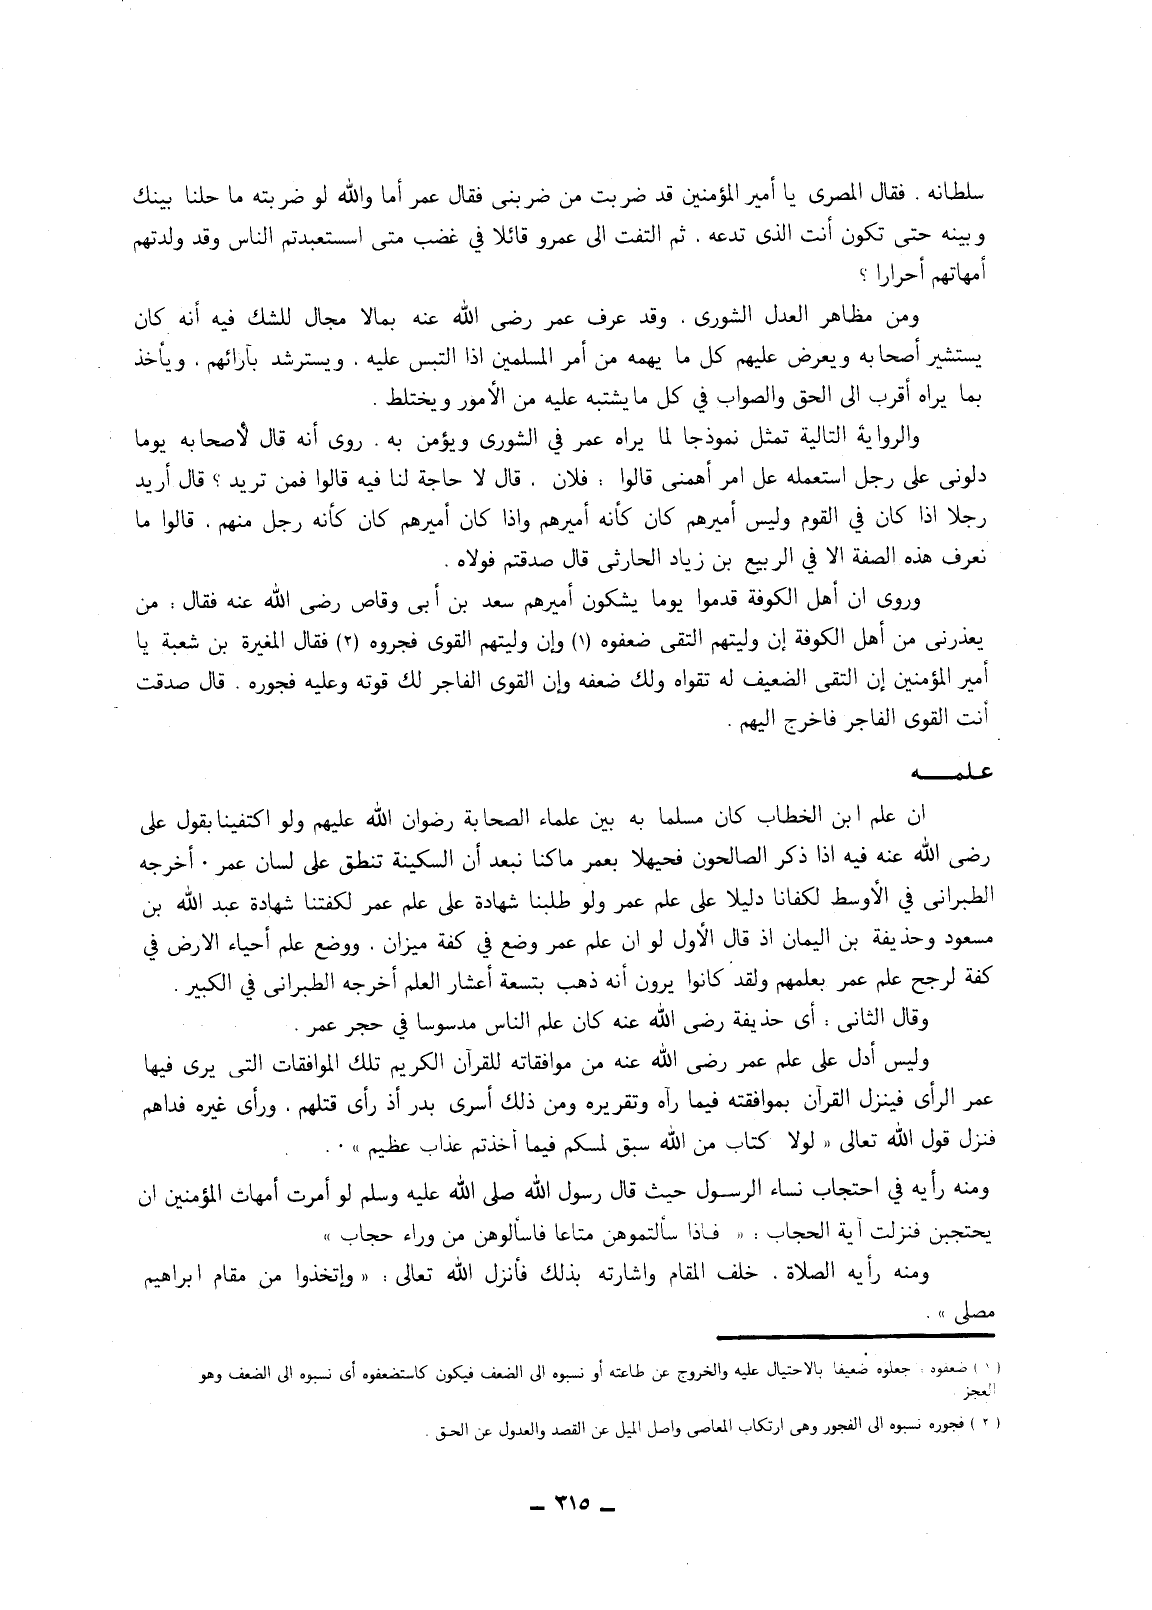 سلطانه . فقال المصرى يا أمير المؤمنين قد ضربت من ضربنى فقال عمر أما والله لو ضربته ما حلنا بينك
وبينه حتى تكون أنت الذى تدعه . ثم التفت الى عمرو قائلا في غضب متى استعبدتم الناس وقد ولدتهم
أمهاتهم أحرارا ؟
ومن مظاهر العدل الشورى . وقد عرف عمر رضى الله عنه بمالا مجال للشك فيه أنه كان
يستشير أصحابه ويعرض عليهم كل ما يهمه من أمر المسلمين اذا التبس عليه . ويسترشد بآرائهم . ويأخذ
بما يراه أقرب الى الحق والصواب في كل مايشتبه عليه من الأمور ويختلط .
والرواية التالية تمثل نموذجا لما يراه عمر في الشورى ويؤمن به . روى أنه قال لأصحابه يوما
دلونى على رجل استعمله عل امر أهمنى قالوا : فلان . قال لا حاجة لنا فيه قالوا فمن تريد ؟ قال أريد
رجلا اذا كان في القوم وليس أميرهم كان كأنه أميرهم واذا كان أميرهم كان كأنه رجل منهم . قالوا ما
نعرف هذه الصفة الا في الربيع بن زياد الحارثى قال صدقتم فولاه .
وروى ان أهل الكوفة قدموا يوما يشكون أميرهم سعد بن أبى وقاص رضى الله عنه فقال : من
يعذرنى من أهل الكوفة إن وليتهم التقى ضعفوه (١) وإن وليتهم القوى فجروه (٢) فقال المغيرة بن شعبة يا
أمير المؤمنين إن التقى الضعيف له تقواه ولك ضعفه وإن القوى الفاجر لك قوته وعليه فجوره . قال صدقت
أنت القوى الفاجر فاخرج اليهم .
علمـــــه
ان علم ابن الخطاب كان مسلما به بين علماء الصحابة رضوان الله عليهم ولو اكتفينا بقول على
رضى الله عنه فيه اذا ذكر الصالحون فحيهلا بعمر ماكنا نبعد أن السكينة تنطق على لسان عمر . أخرجه
الطبرانى في الأوسط لكفانا دليلا على علم عمر ولو طلبنا شهادة على علم عمر لكفتنا شهادة عبد الله بن
مسعود وحذيفة بن اليمان اذ قال الأول لو ان علم عمر وضع في كفة ميزان . ووضع علم أحياء الارض في
كفة لرجح علم عمر بعلمهم ولقد كانوا يرون أنه ذهب بتسعة أعشار العلم أخرجه الطبرانى في الكبير .
وقال الثانى : أى حذيفة رضى الله عنه كان علم الناس مدسوسا في حجر عمر .
وليس أدل على علم عمر رضى الله عنه من موافقاته للقرآن الكريم تلك الموافقات التى يرى فيها
عمر الرأى فينزل القرآن بموافقته فيما رآه وتقريره ومن ذلك أسرى بدر أذ رأى قتلهم . ورأى غيره فداهم
فنزل قول الله تعالى « لولا كتاب من الله سبق لمسكم فيما أخذتم عذاب عظيم » .
ومنه رأيه في احتجاب نساء الرسـول حيث قال رسول الله صلى الله عليه وسلم لو أمرت أمهاث المؤمنين ان
يحتجبن فنزلت آية الحجاب : « فـاذا سألتموهن متاعا فاسألوهن من وراء حجاب »
ومنه رأيه الصلاة . خلف المقام واشارته بذلك فأنزل الله تعالى : « وإتخذوا من مقام ابراهيم
مصلى » .
(١) ضعفوه : جعلوه ضعيفا بالاحتيال عليه والخروج عن طاعته أو نسبوه الى الضعف فيكون كاستضعفوه أى نسبوه الى الضعف وهو
العجز
(٢) فجوره نسبوه الى الفجور وهى ارتكاب المعاصى واصل الميل عن القصد والعدول عن الحـق .
— ٣١٥ —